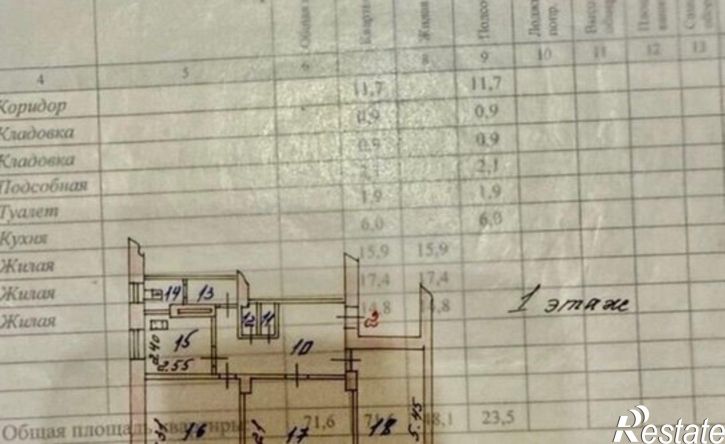 Общая
Квартир
Жилая
Подсоб
Лоджи
попр.
4 5 6 8 9 10 11 12 13
Коридор 11,7 11,7
Кладовка 0,9 0,9
Кладовка 0,9 0,9
Подсобная 2,1 2,1
Туалет 1,9 1,9
Кухня 6,0 6,0
Жилая 15,9 15,9
Жилая 17,4 17,4
Жилая 14,8 14,8
1 этаж
14 13
12 11
15 10
2.40
2.55
16 17 18
5.45
Общая площадь квартиры: 71,6 71,6 48,1 23,5
Restate